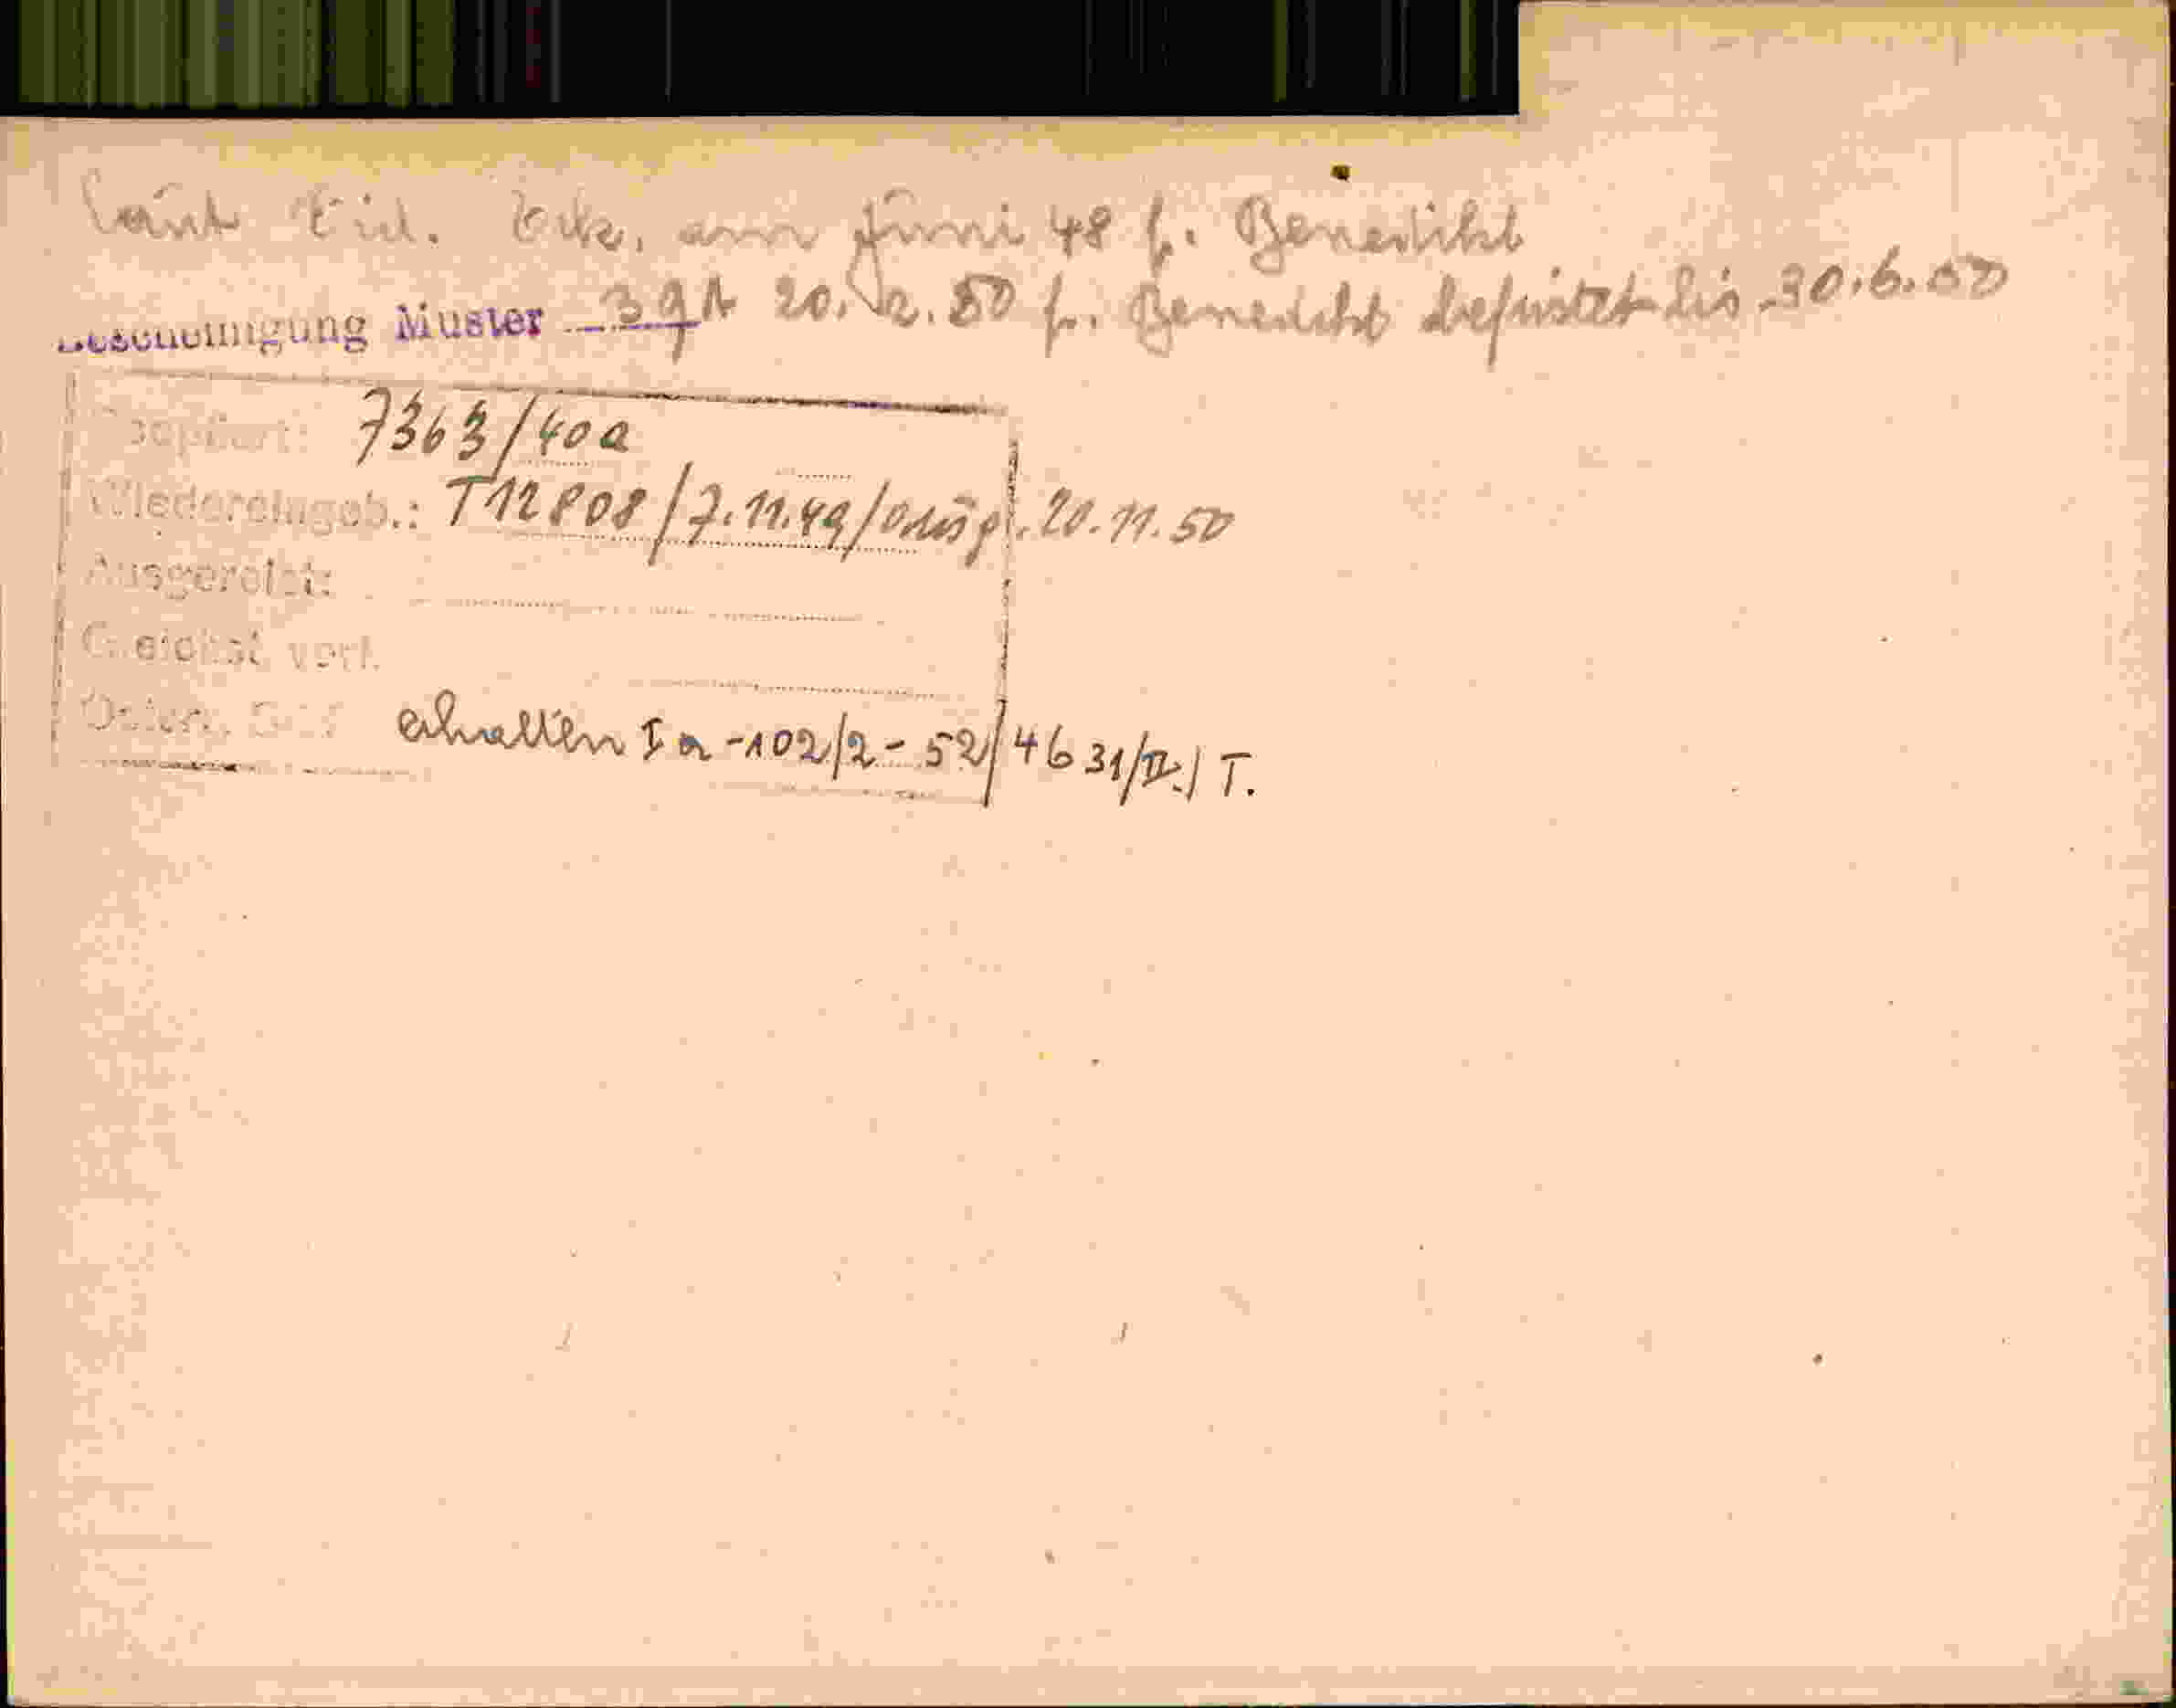 laut Eid. Erk. am Juni 48 f. Benedikt
Bescheinigung Muster 3 gA 20.2.50 f. Benedikt befristet bis 30.6.50
Optiert: 7363/40a
Wiedereingeb.: T12808/7.11.49/ausg. 20.11.50
Ausgereist:
Gleichst. verf.
erhalten I a -102/2- 52/4631/IV./T.